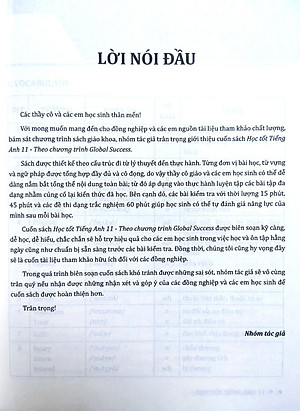 LỜI NÓI ĐẦU
Các thầy cô và các em học sinh thân mến!
Với mong muốn mang đến cho đồng nghiệp và các em nguồn tài liệu tham khảo chất lượng,
bám sát chương trình sách giáo khoa, nhóm tác giả trân trọng giới thiệu cuốn sách Học tốt Tiếng
Anh 11 - Theo chương trình Global Success.
Sách được thiết kế theo cấu trúc đi từ lý thuyết đến thực hành. Từng đơn vị bài học, từ vựng
và ngữ pháp được tổng hợp đầy đủ và cô đọng, do vậy thầy cô giáo và các em học sinh có thể dễ
dàng nắm bắt tổng thể nội dung toàn bài; từ đó áp dụng vào thực hành luyện tập các bài tập đa
dạng nhằm củng cố lại kiến thức đã học. Bên cạnh đó, các bài kiểm tra với thời lượng 15 phút,
45 phút và các đề thi dạng trắc nghiệm 60 phút giúp học sinh có thể tự đánh giá năng lực của
mình sau mỗi bài học.
Cuốn sách Học tốt Tiếng Anh 11 - Theo chương trình Global Success được biên soạn kỹ càng,
dễ học, dễ hiểu, chắc chắn sẽ hỗ trợ hiệu quả cho các em học sinh trong việc học và ôn tập hằng
ngày cũng như chuẩn bị sẵn sàng trước các bài kiểm tra. Đồng thời, chúng tôi cũng hy vọng đây
sẽ là cuốn tài liệu tham khảo hữu ích đối với các đồng nghiệp.
Trong quá trình biên soạn cuốn sách khó tránh được những sai sót, nhóm tác giả sẽ vô cùng
trân quý nếu nhận được những nhận xét và góp ý của các đồng nghiệp và các em học sinh để
cuốn sách được hoàn thiện hơn.
Trân trọng!
Nhóm tác giả